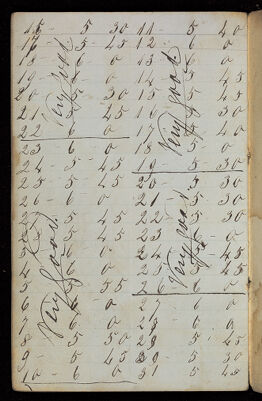 15 - 5 30
17 - 5 45
18 - 6 0
19 - 6 0
20 - 30
21 - 45
22 6 0
23 6 0
24 5 45
25 5 45
26 - 6 0
5 45
5 45
6 0
5 0
5 55
6 - 0
7 0
8 5 50
9 - 5 45
10 - 6 0
Very good
Very good
11 - 5 40
12 - 6 0
13 6 0
14 5 45
15 5 45
16 30
17 40
18 5 0
19 - 5 30
20 - 5 30
21 5 30
22 5 30
23 0
24 45
25 45
26 6 0
27 6 0
28 6 0
29 5 45
30 5 30
31 5 45
Very good
Very good